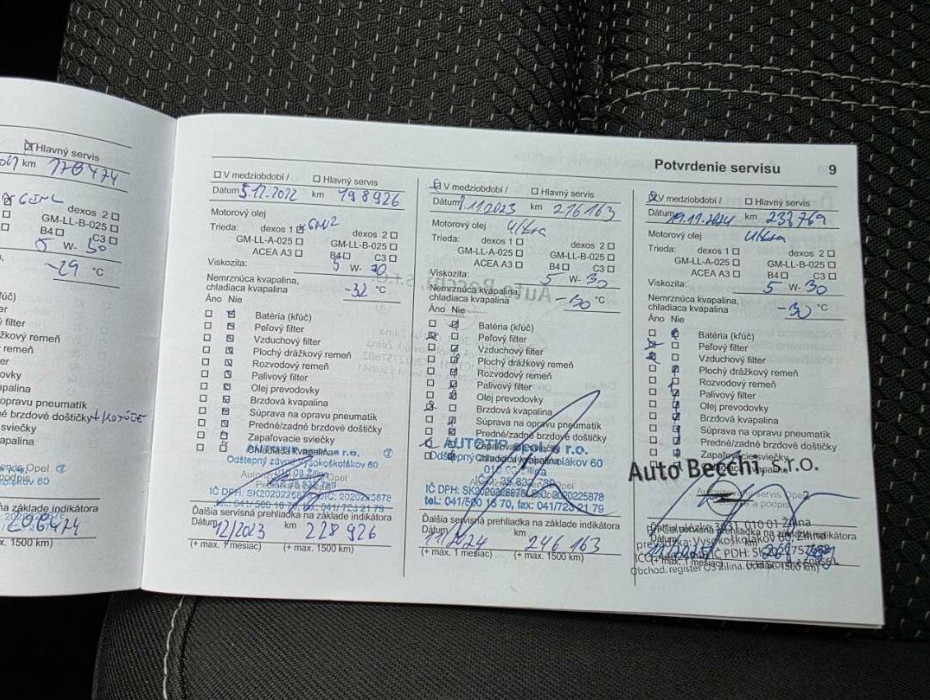 Hlavný servis
km 170474
dexos 2
GM-LL-B-025
B4 C3
5 W- 30
-29 °C
filter
remeň
opravu pneumatik
né brzdové doštičky
sviečky
apalina
na základe indikátora
x. 1500 km)
Potvrdenie servisu 9
V medziobdobí / Hlavný servis
Dátum 5.12.2022 km 198926
Motorový olej
Trieda: dexos 1 dexos 2
GM-LL-A-025 GM-LL-B-025
ACEA A3 B4 C3
Viskozita: 5 W- 30
Nemrznúca kvapalina,
chladiaca kvapalina -32 °C
Áno Nie
Batéria (kľúč)
Peľový filter
Vzduchový filter
Plochý drážkový remeň
Rozvodový remeň
Palivový filter
Olej prevodovky
Brzdová kvapalina
Súprava na opravu pneumatik
Predné/zadné brzdové doštičky
Zapaľovacie sviečky
Chladiaca kvapalina
Odštepný závod Vysokoškolákov 60
IČ DPH: SK2020225878 DIČ: 2020225878
tel.: 041/500 16 70, fax: 041/723 21 79
Ďalšia servisná prehliadka na základe indikátora
Dátum 12/2023 km 228 926
(+ max. 1 mesiac) (+ max. 1500 km)
V medziobdobí / Hlavný servis
Dátum 11 2023 km 216 163
Motorový olej Ultra
Trieda: dexos 1 dexos 2
GM-LL-A-025 GM-LL-B-025
ACEA A3 B4 C3
Viskozita: 5 W- 30
Nemrznúca kvapalina,
chladiaca kvapalina -30 °C
Áno Nie
Batéria (kľúč)
Peľový filter
Vzduchový filter
Plochý drážkový remeň
Rozvodový remeň
Palivový filter
Olej prevodovky
Brzdová kvapalina
Súprava na opravu pneumatik
Predné/zadné brzdové doštičky
Zapaľovacie sviečky
Chladiaca kvapalina
AUTOTIP, spol. s r.o.
Odštepný závod Vysokoškolákov 60
IČ DPH: SK2020225878 DIČ: 2020225878
tel.: 041/500 16 70, fax: 041/723 21 79
Ďalšia servisná prehliadka na základe indikátora
Dátum 11/2024 km 246 163
(+ max. 1 mesiac) (+ max. 1500 km)
V medziobdobí / Hlavný servis
Dátum 2024 km 233 769
Motorový olej Ultra
Trieda: dexos 1 dexos 2
GM-LL-A-025 GM-LL-B-025
ACEA A3 B4 C3
Viskozita: 5 W- 30
Nemrznúca kvapalina,
chladiaca kvapalina -30 °C
Áno Nie
Batéria (kľúč)
Peľový filter
Vzduchový filter
Plochý drážkový remeň
Rozvodový remeň
Palivový filter
Olej prevodovky
Brzdová kvapalina
Súprava na opravu pneumatik
Predné/zadné brzdové doštičky
Zapaľovacie sviečky
Auto Becchi, s.r.o.
010 01 Žilina
Vysokoškolákov
(+ max. 1 mesiac) 1500 km)